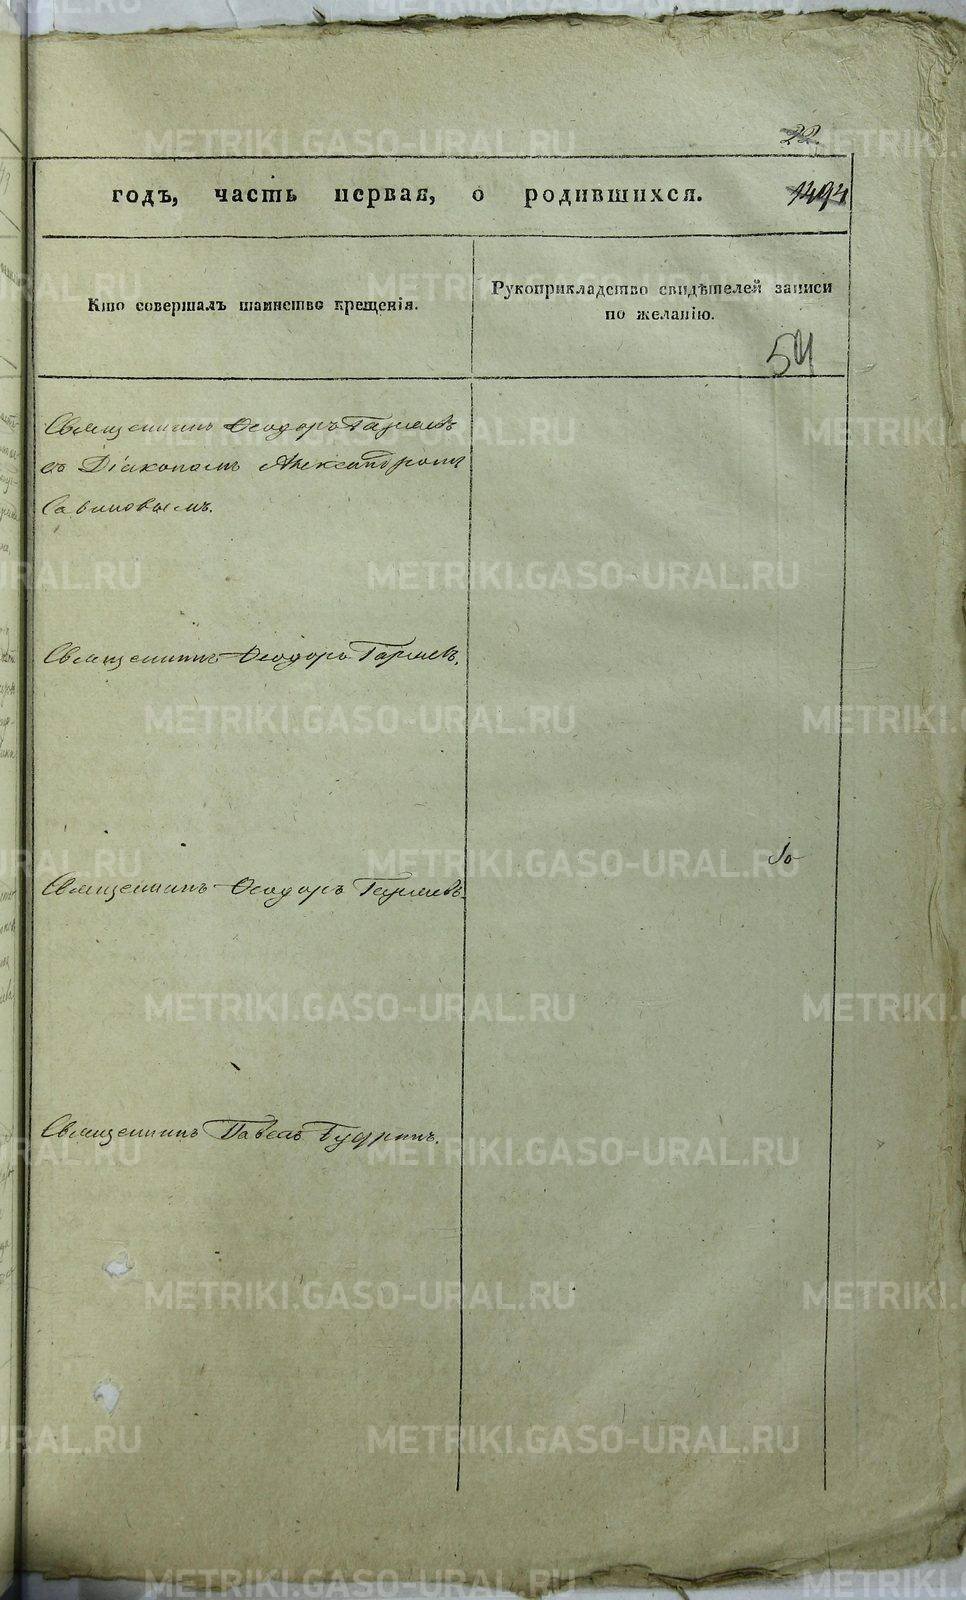 22.
годъ, часть первая, о родившихся. 1494
Кто совершалъ таинство крещенія.
Рукоприкладство свидѣтелей записи
по желанію.
54
Священникъ Ѳеодоръ
съ Діакономъ Александромъ
Савиновымъ.
Священникъ Ѳеодоръ
Священникъ Ѳеодоръ
Священникъ Павелъ
METRIKI.GASO-URAL.RU